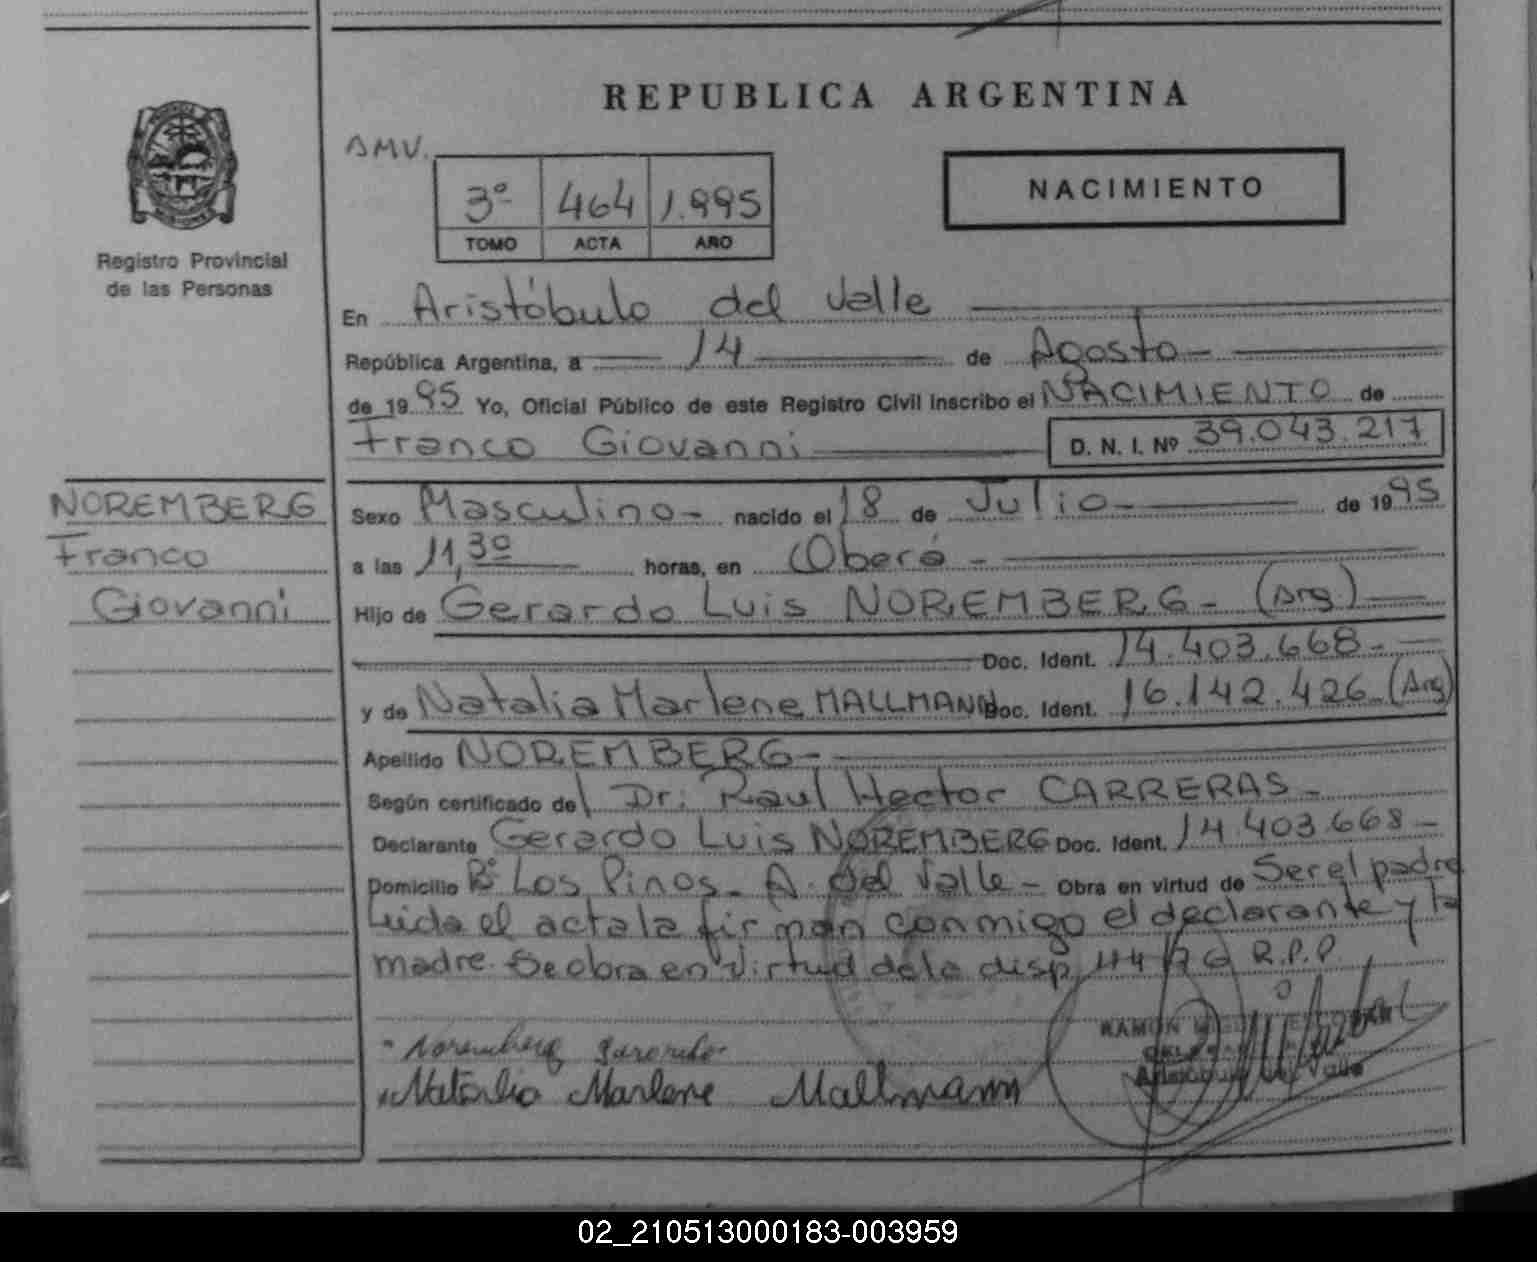 REPUBLICA ARGENTINA
AMV.
3º 464 1.995
TOMO ACTA AÑO
NACIMIENTO
Registro Provincial
de las Personas
En Aristóbulo del Valle
República Argentina, a 14 de Agosto
de 1995 Yo, Oficial Público de este Registro Civil inscribo el NACIMIENTO de
Franco Giovanni D. N. I. Nº 39.043.217
NOREMBERG
Franco
Giovanni
Sexo Masculino nacido el 18 de Julio de 1995
a las 11,30 horas, en Oberá
Hijo de Gerardo Luis NOREMBERG (Arg)
Doc. Ident. 14.403.668
y de Natalia Marlene MALLMANN Doc. Ident. 16.142.426 (Arg)
Apellido NOREMBERG
Según certificado del Dr. Raul Hector CARRERAS
Declarante Gerardo Luis NOREMBERG Doc. Ident. 14.403.668
Domicilio Bº Los Pinos - A. del Valle - Obra en virtud de Ser el padre
Leida el acta la firman conmigo el declarante y la
madre. Se obra en virtud de la disp. 44/76 R.P.P.
Noremberg Gerardo
Natalia Marlene Mallmann
RAMON
Aristobulo del Valle
02_210513000183-003959